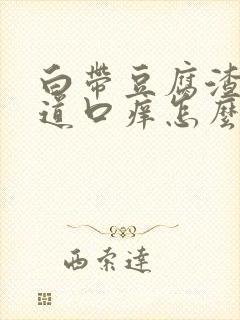 白帶豆腐渣
道口痒怎麼
西索達